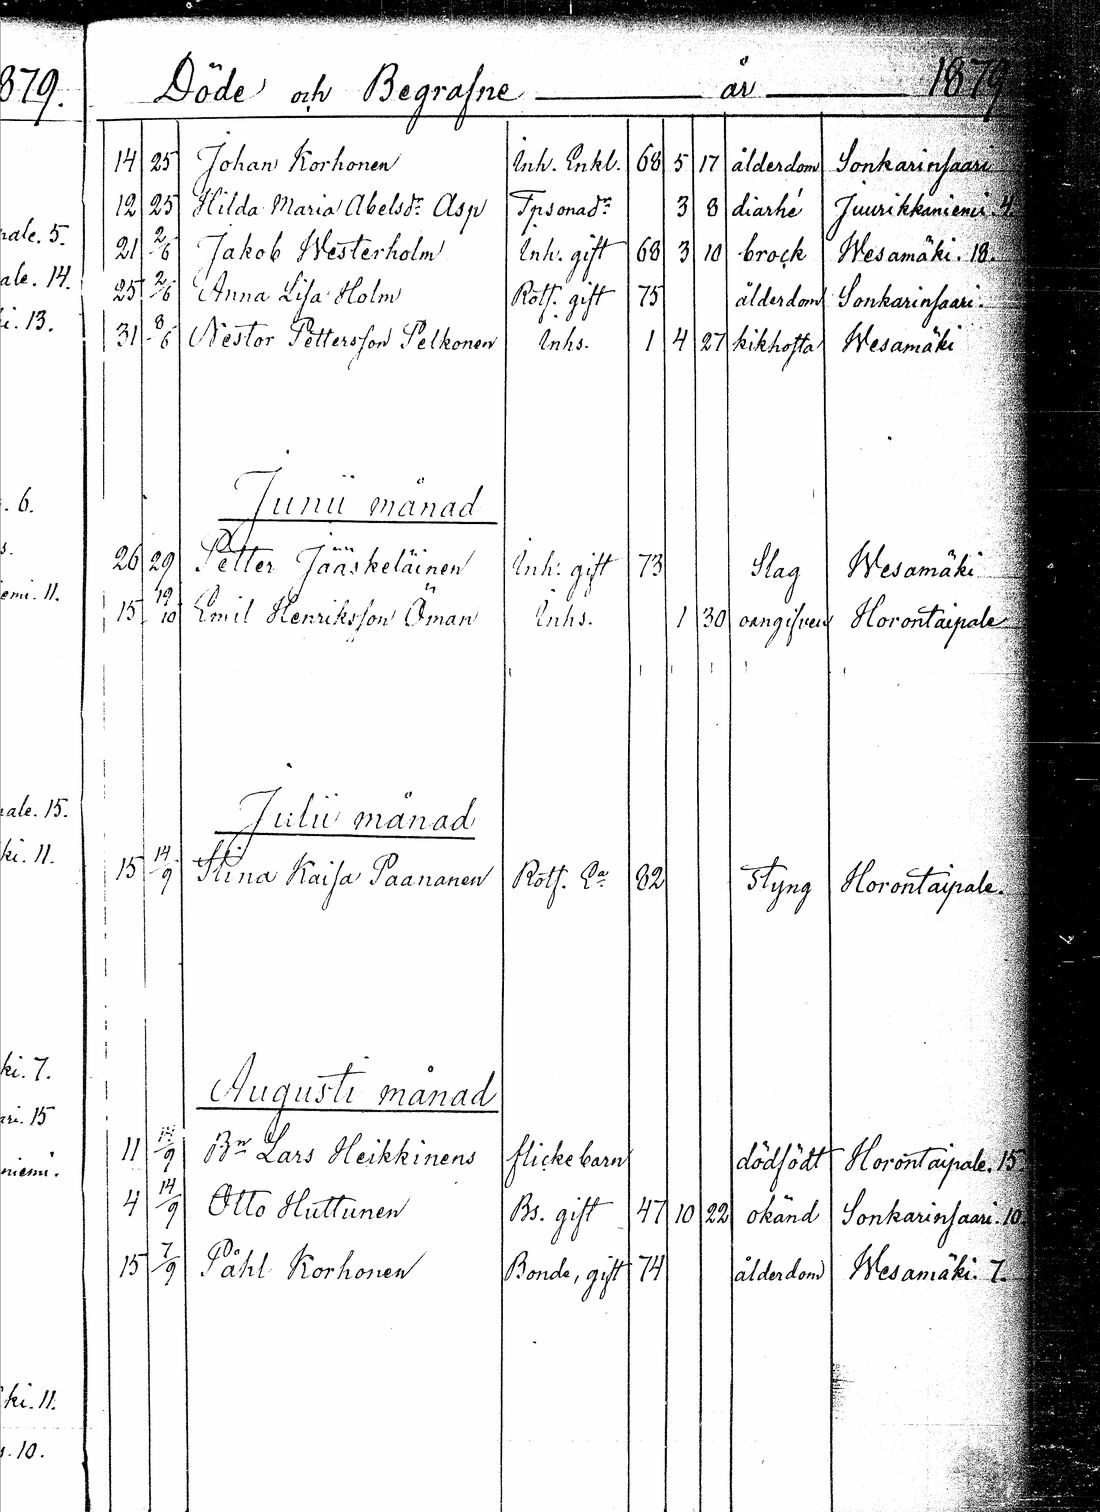 879.
Döde och Begrafne år 1879
14 25 Johan Korhonen Inh. Enkl. 68 5 17 ålderdom Sonkarinsaari
12 25 Hilda Maria Abelsdr Asp Tpsonadr 3 8 diarhé Juurikkaniemi. 4.
nale. 5.
21 2/6 Jakob Westerholm Inh. gift 68 3 10 brock Wesamäki. 18.
ale. 14.
25 2/6 Anna Lisa Holm Rotf. gift 75 ålderdom Sonkarinsaari.
i. 13.
31 8/6 Nestor Pettersson Pelkonen Inhs. 1 4 27 kikhosta Wesamäki
. 6.
Junii månad
s.
26 29 Petter Jääskeläinen Inh. gift 73 Slag Wesamäki
emi. 11.
15 19/10 Emil Henriksson Öman Inhs. 1 30 oangifven Horontaipale
ale. 15.
Julii månad
ki. 11.
15 14/9 Stina Kaisa Paananen Rotf. Ea 82 Styng Horontaipale.
ki. 7.
Augusti månad
ari. 15
11 /9 Bn Lars Heikkinens flickebarn dödfödt Horontaipale. 15
niemi.
4 14/9 Otto Huttunen Bs. gift 47 10 22 okänd Sonkarinsaari. 10.
15 7/9 Påhl Korhonen Bonde, gift 74 ålderdom Wesamäki. 7.
ki. 11.
s. 10.